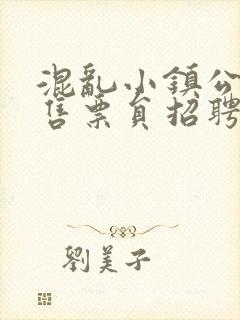 混亂小鎮公
售票員招聘
劉美子